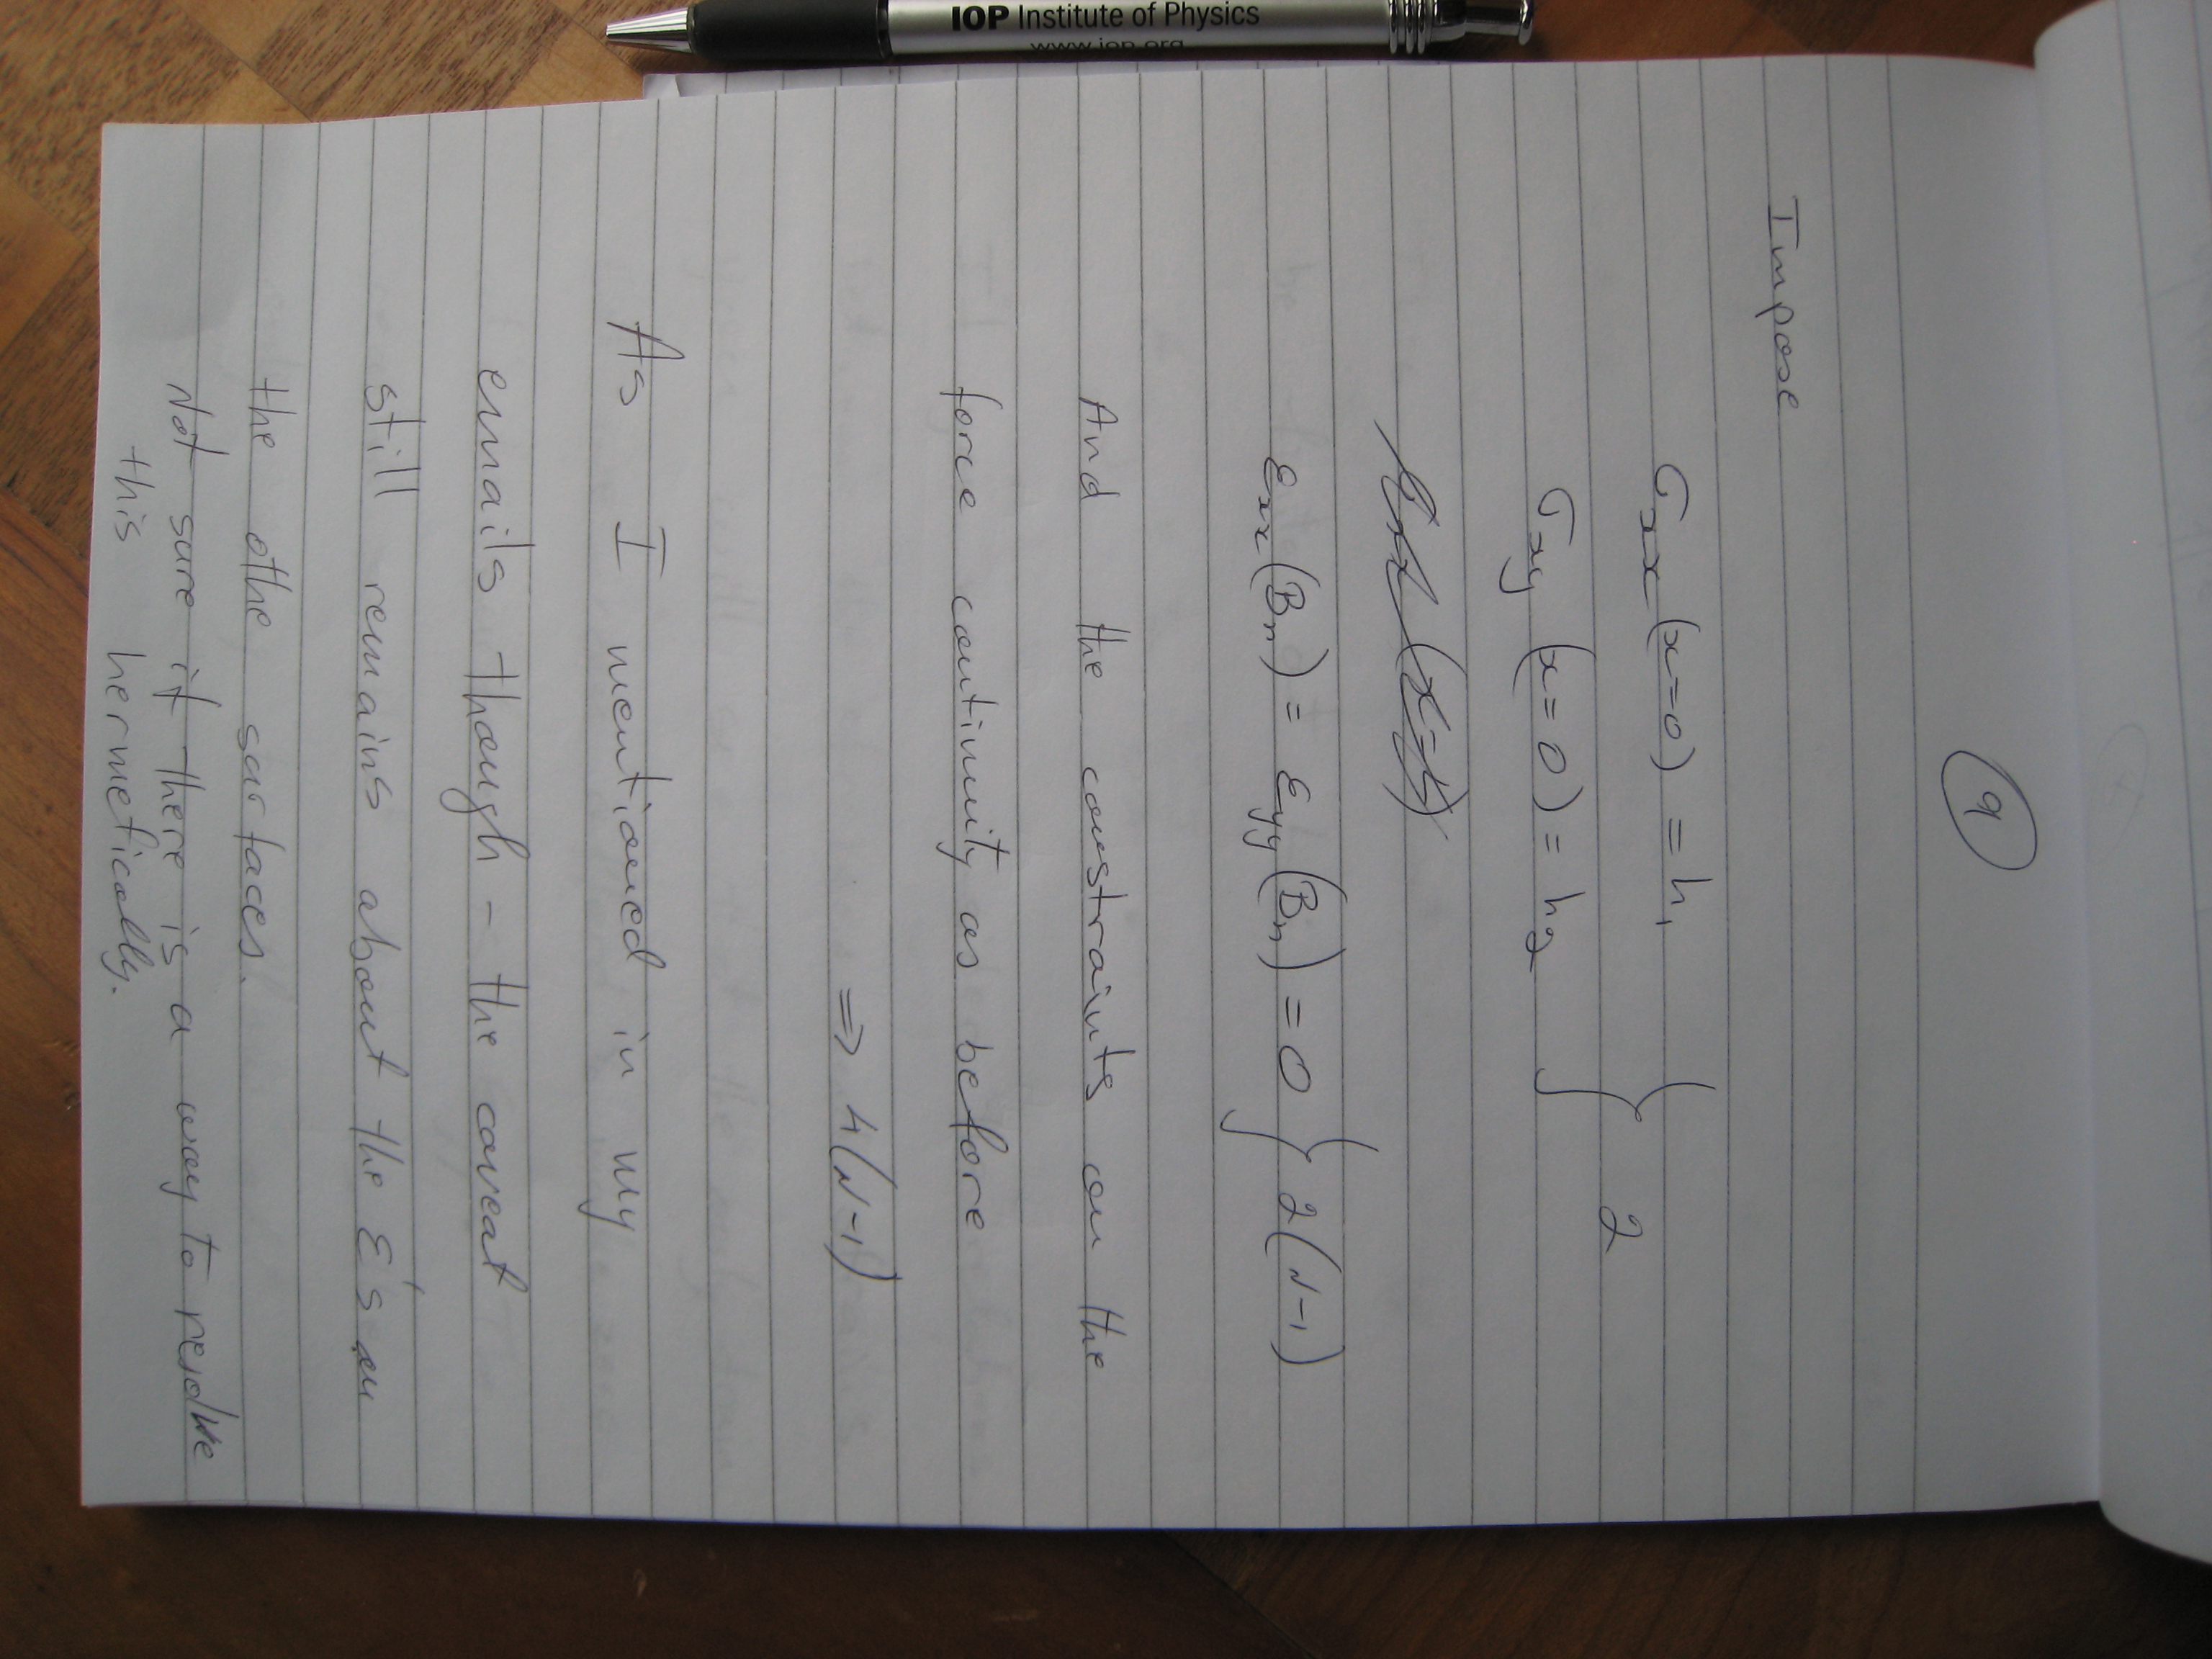 IOP Institute of Physics
www.iop.org
9
Impose
σxx(x=0) = h1
σxy(x=0) = h2 } 2
εxx(Bn) = εyy(Bn) = 0 } 2(N-1)
And the constraints on the
force continuity as before
⇒ 4(N-1)
As I mentioned in my
emails though - the caveat
still remains about the ε's on
the othe surfaces.
Not sure if there is a way to resolve
this hermetically.